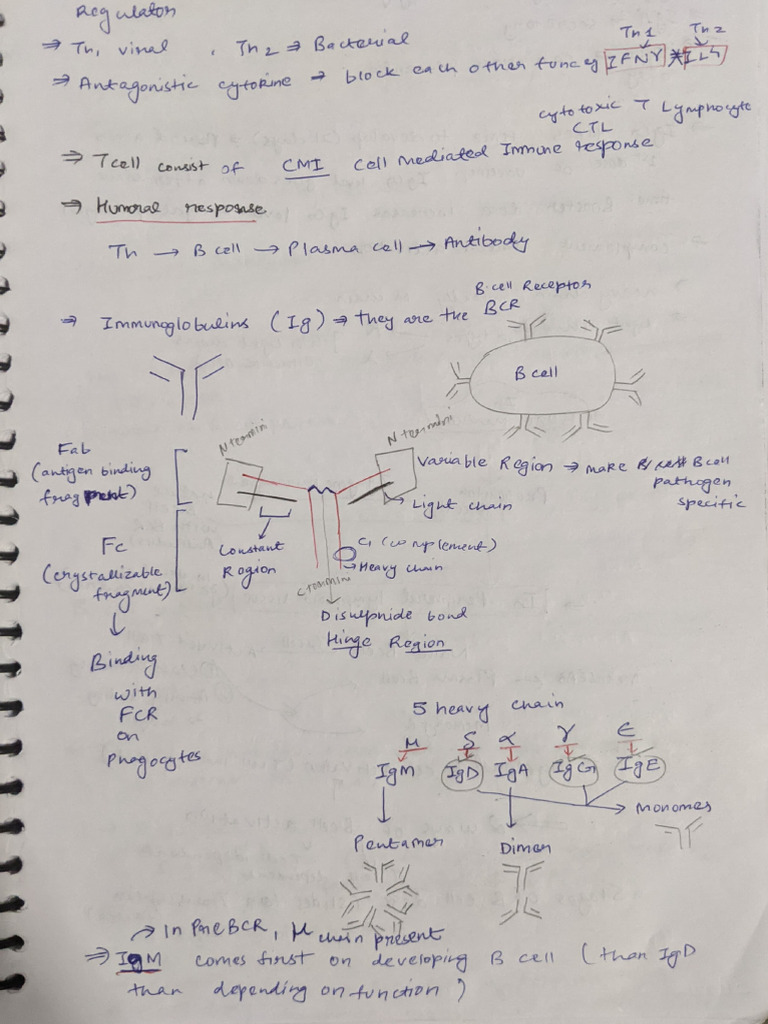 Regulator
⇒ Th1 viral , Th2 ⇒ Bacterial
Th1 Th2
⇒ Antagonistic cytokine → block each other func by IFNγ * IL4
cytotoxic T Lymphocyte
CTL
⇒ T cell consist of CMI Cell Mediated Immune response
⇒ Humoral response
Th → B cell → Plasma cell → Antibody
B cell Receptor
⇒ Immunoglobulins (Ig) ⇒ They are the BCR
B cell
N termini
N termini
Fab
(antigen binding
fragment)
Variable Region → make B cell
pathogen
specific
Light chain
Constant
Region
C1 (complement)
Heavy chain
C termini
Fc
(crystallizable
fragment)
Disulphide bond
Hinge Region
Binding
with
FCR
on
Phagocytes
5 heavy chain
μ δ α γ ε
IgM IgD IgA IgG IgE
→ Monomer
Pentamer Dimer
→ In PreBCR, μ chain present
⇒ IgM comes first on developing B cell (than IgD
than depending on function)